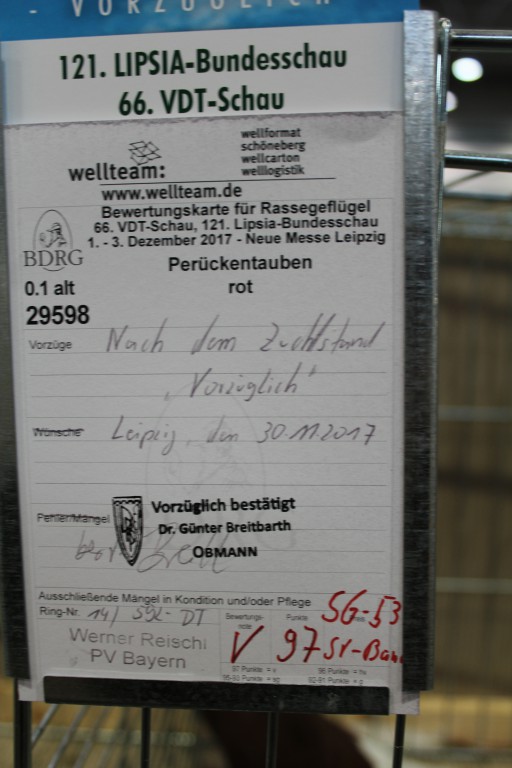 - VORZÜGLICH
121. LIPSIA-Bundesschau
66. VDT-Schau
wellteam:
wellformat
schöneberg
wellcarton
welllogistik
www.wellteam.de
BDRG
Bewertungskarte für Rassegeflügel
66. VDT-Schau, 121. Lipsia-Bundesschau
1. - 3. Dezember 2017 - Neue Messe Leipzig
Perückentauben
0.1 alt
rot
29598
Vorzüge Nach dem Zuchtstand
"Vorzüglich"
Wünsche Leipzig, den 30.11.2017
Fehler/Mängel
Vorzüglich bestätigt
Dr. Günter Breitbarth
OBMANN
Ausschließende Mängel in Kondition und/oder Pflege
SG-53
Ring-Nr. 14/ 592-DT
Bewertungs-
note
Punkte
V 97 SV-Ban
Werner Reischl
PV Bayern
97 Punkte = v
96 Punkte = hv